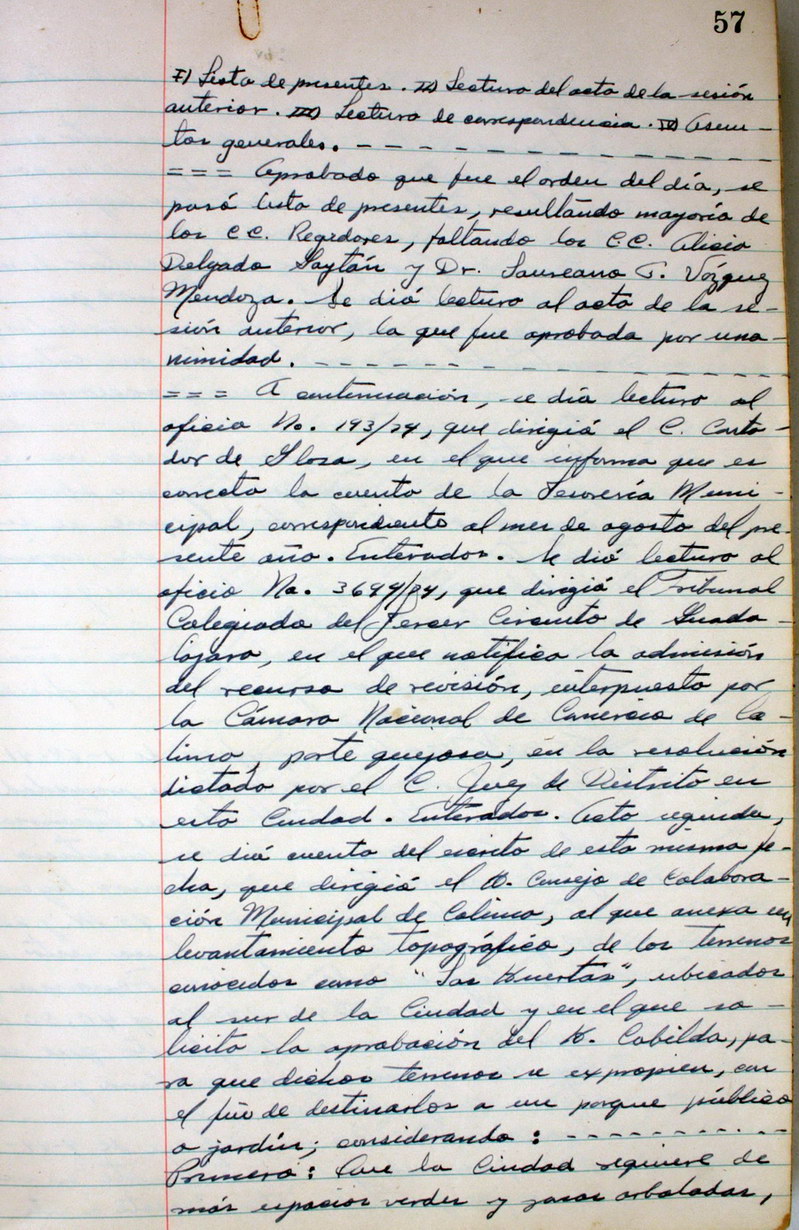 57
I) Lista de presentes. II) Lectura del acta de la sesión
anterior. III) Lectura de correspondencia. IV) Asun-
tos generales. - - - - - - - - - - - - -
= = = Aprobado que fue el orden del día, se
pasó lista de presentes, resultando mayoría de
los CC. Regidores, faltando los C.C. Alicia
Delgado Gaytán y Dr. Laureano T. Vázquez
Mendoza. Se dió lectura al acta de la se-
sión anterior, la que fue aprobada por una-
nimidad. - - - - - - - - - - - - - -
= = = A continuación, se dia lectura al
oficio No. 193/74, que dirigió el C. Conta-
dor de Glosa, en el que informa que es
correcta la cuenta de la Tesorería Muni-
cipal, correspondiente al mes de agosto del pre-
sente año. Enterados. Se dió lectura al
oficio No. 3694/74, que dirigió el Tribunal
Colegiado del Tercer Circuito de Guada-
lajara, en el que notifica la admisión
del recurso de revisión, interpuesto por
la Cámara Nacional de Comercio de Co-
lima, parte quejosa, en la resolución
dictada por el C. Juez de Distrito en
esta Ciudad. Enterados. Acto seguido,
se dió cuenta del escrito de esta misma fe-
cha, que dirigió el H. Consejo de Colabora-
ción Municipal de Colima, al que anexa un
levantamiento topográfico, de los terrenos
conocidos como "Las Huertas", ubicados
al sur de la Ciudad y en el que so-
licita la aprobación del H. Cabildo, pa-
ra que dichos terrenos se expropien, con
el fin de destinarlos a un parque público
o jardín; considerando: - - - - - - - - - -
Primero: Que la Ciudad requiere de
más espacios verdes y zonas arboladas,